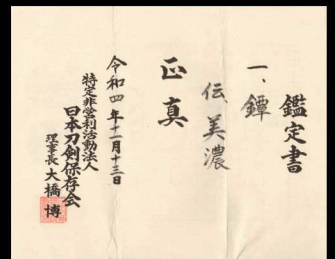 鑑定書
一、鐔
伝美濃
正真
令和四年十一月十三日
特定非営利活動法人
日本刀剣保存会
理事長大橋博